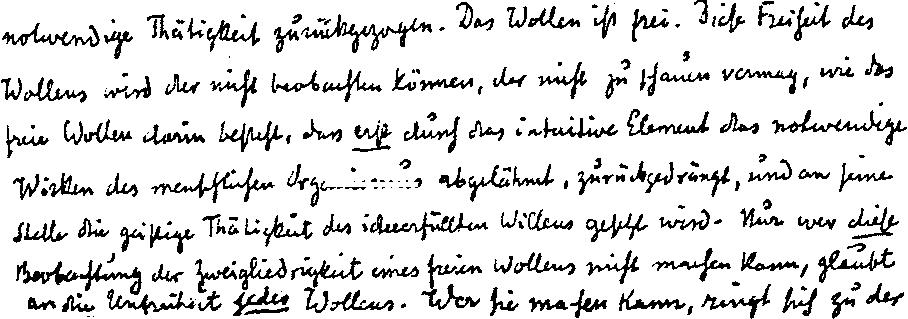 notwendige Thätigkeit zurückgezogen. Das Wollen ist frei. Diese Freiheit des
Wollens wird der nicht beobachten können, der nicht zu schauen vermag, wie das
freie Wollen darin besteht, dass erst durch das intuitive Element das notwendige
Wirken des menschlichen Organismus abgelähmt, zurückgedrängt, und an seine
Stelle die geistige Thätigkeit des ideeerfüllten Willens gesetzt wird. Nur wer diese
Beobachtung der Zweigliedrigkeit eines freien Wollens nicht machen kann, glaubt
an die Unfreiheit jedes Wollens. Wer sie machen kann, ringt sich zu der